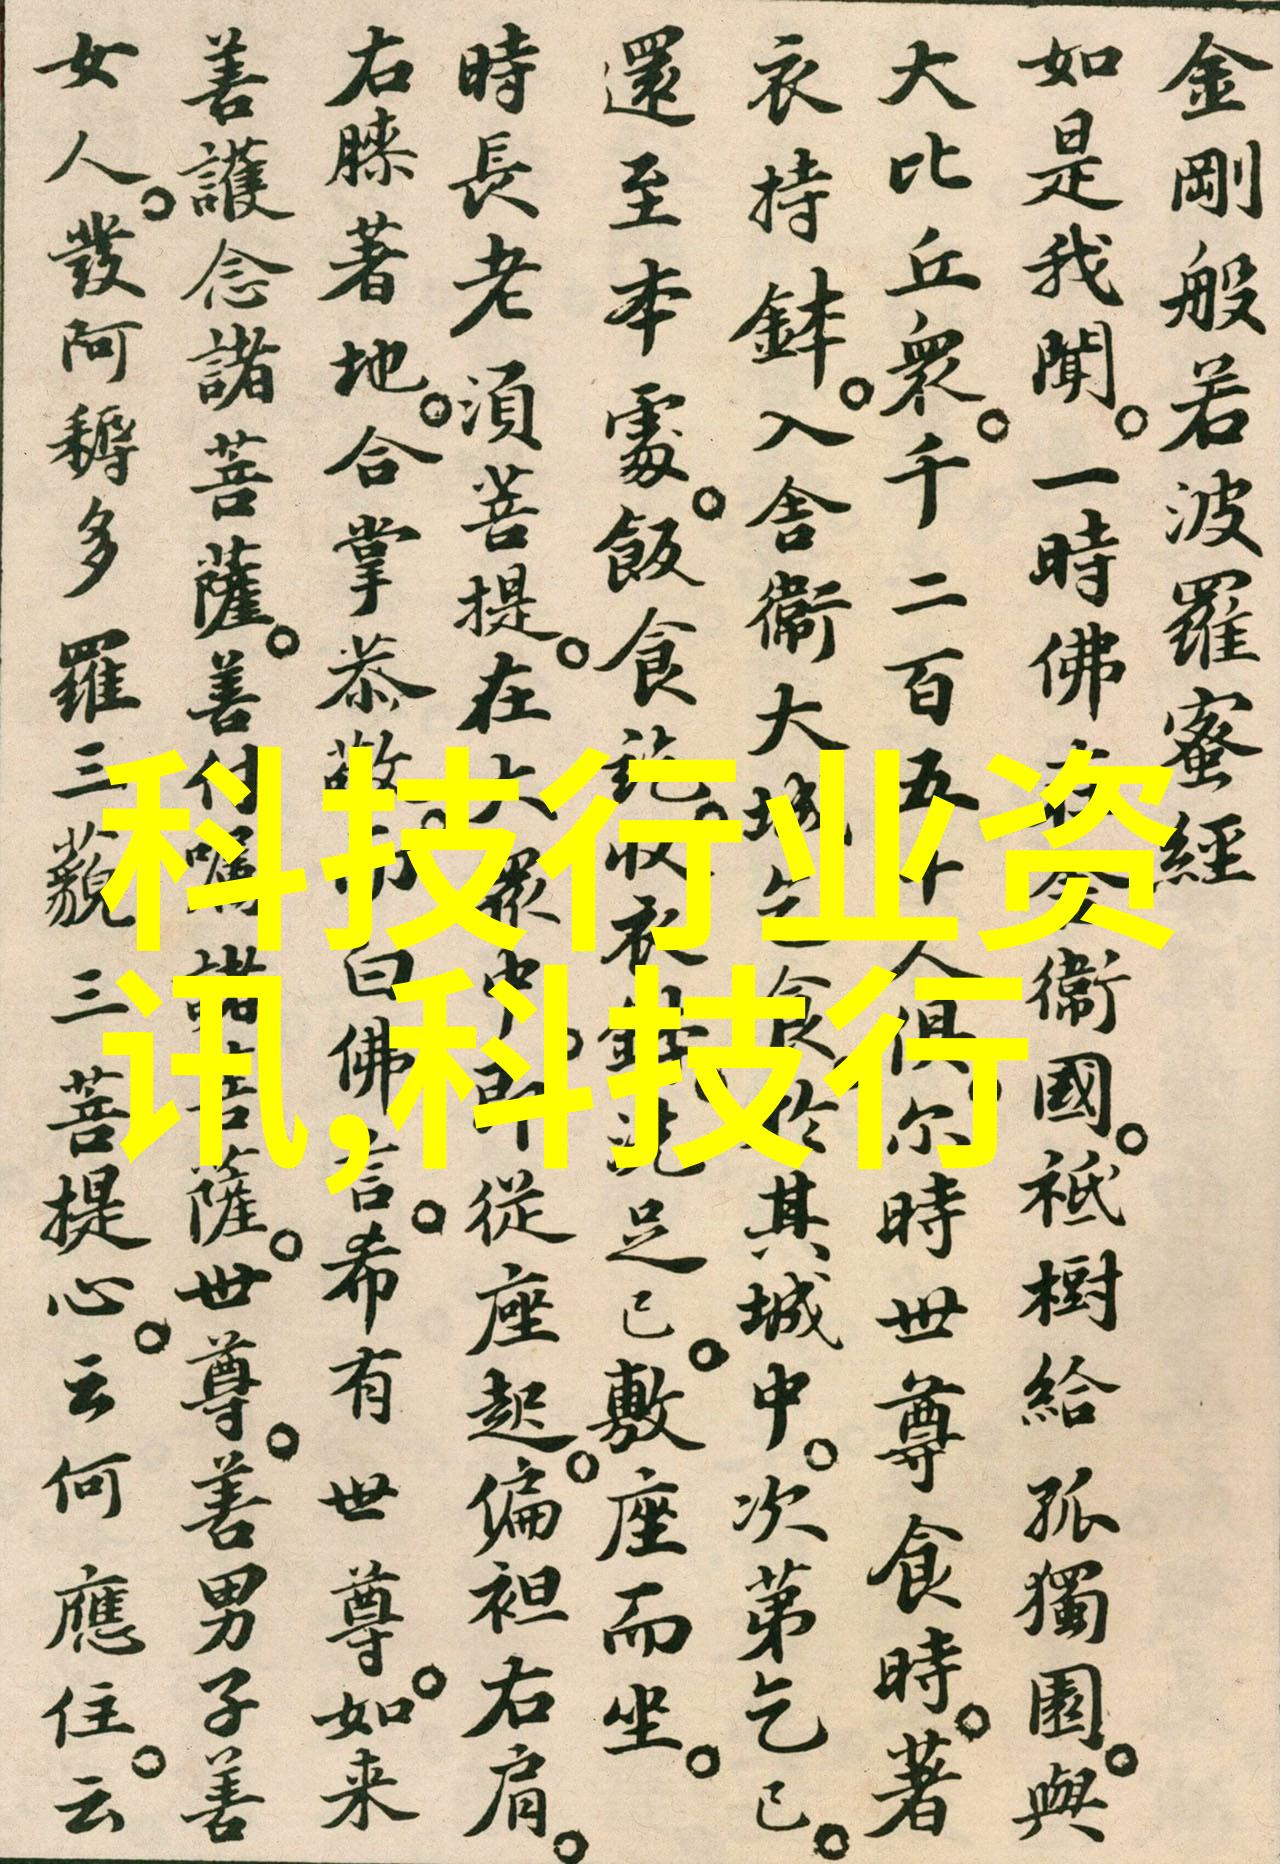 金剛般若波羅蜜經
如是我聞。一時佛在舍衞國。祇樹給孤獨園。與
大比丘衆。千二百五十人俱。尔時世尊食時。著
衣持鉢。入舍衞大城乞食於其城中。次第乞已。
還至本處。飯食訖。收衣鉢。洗足已。敷座而坐。
時長老須菩提。在大衆中。即從座起。偏袒右肩。
右膝著地。合掌恭敬。而白佛言。希有世尊。如来
善護念諸菩薩。善付嘱諸菩薩。世尊。善男子善
女人。發阿耨多羅三藐三菩提心。云何應住。云
科技行业资
讯,科技行